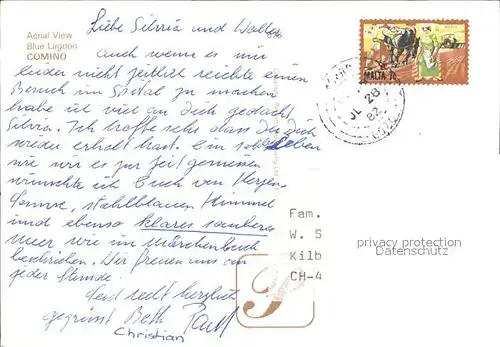 Aerial View
Blue Lagoon
COMINO
Liebe Silvia und Walter
auch wenn es mir
leider nicht zeitlich reichte einen
Besuch im Spital zu machen
habe ich viel an dich gedacht
Silvia. Ich hoffe sehr dass Du Dich
wieder erholt hast. Ein Leben
wie wir es zur Zeit geniessen
wünschte ich Euch von Herzen.
Sonne, stahlblauen Himmel
und ebenso klares sauberes
Meer, wie im Märchenbuch
beschrieben. Wir freuen uns an
jeder Stunde.
Seid recht herzlich
gegrüsst Beth
Christian
MALTA
JL 28
82
Fam.
W. S
Kilb
CH-4
privacy protection
Datenschutz